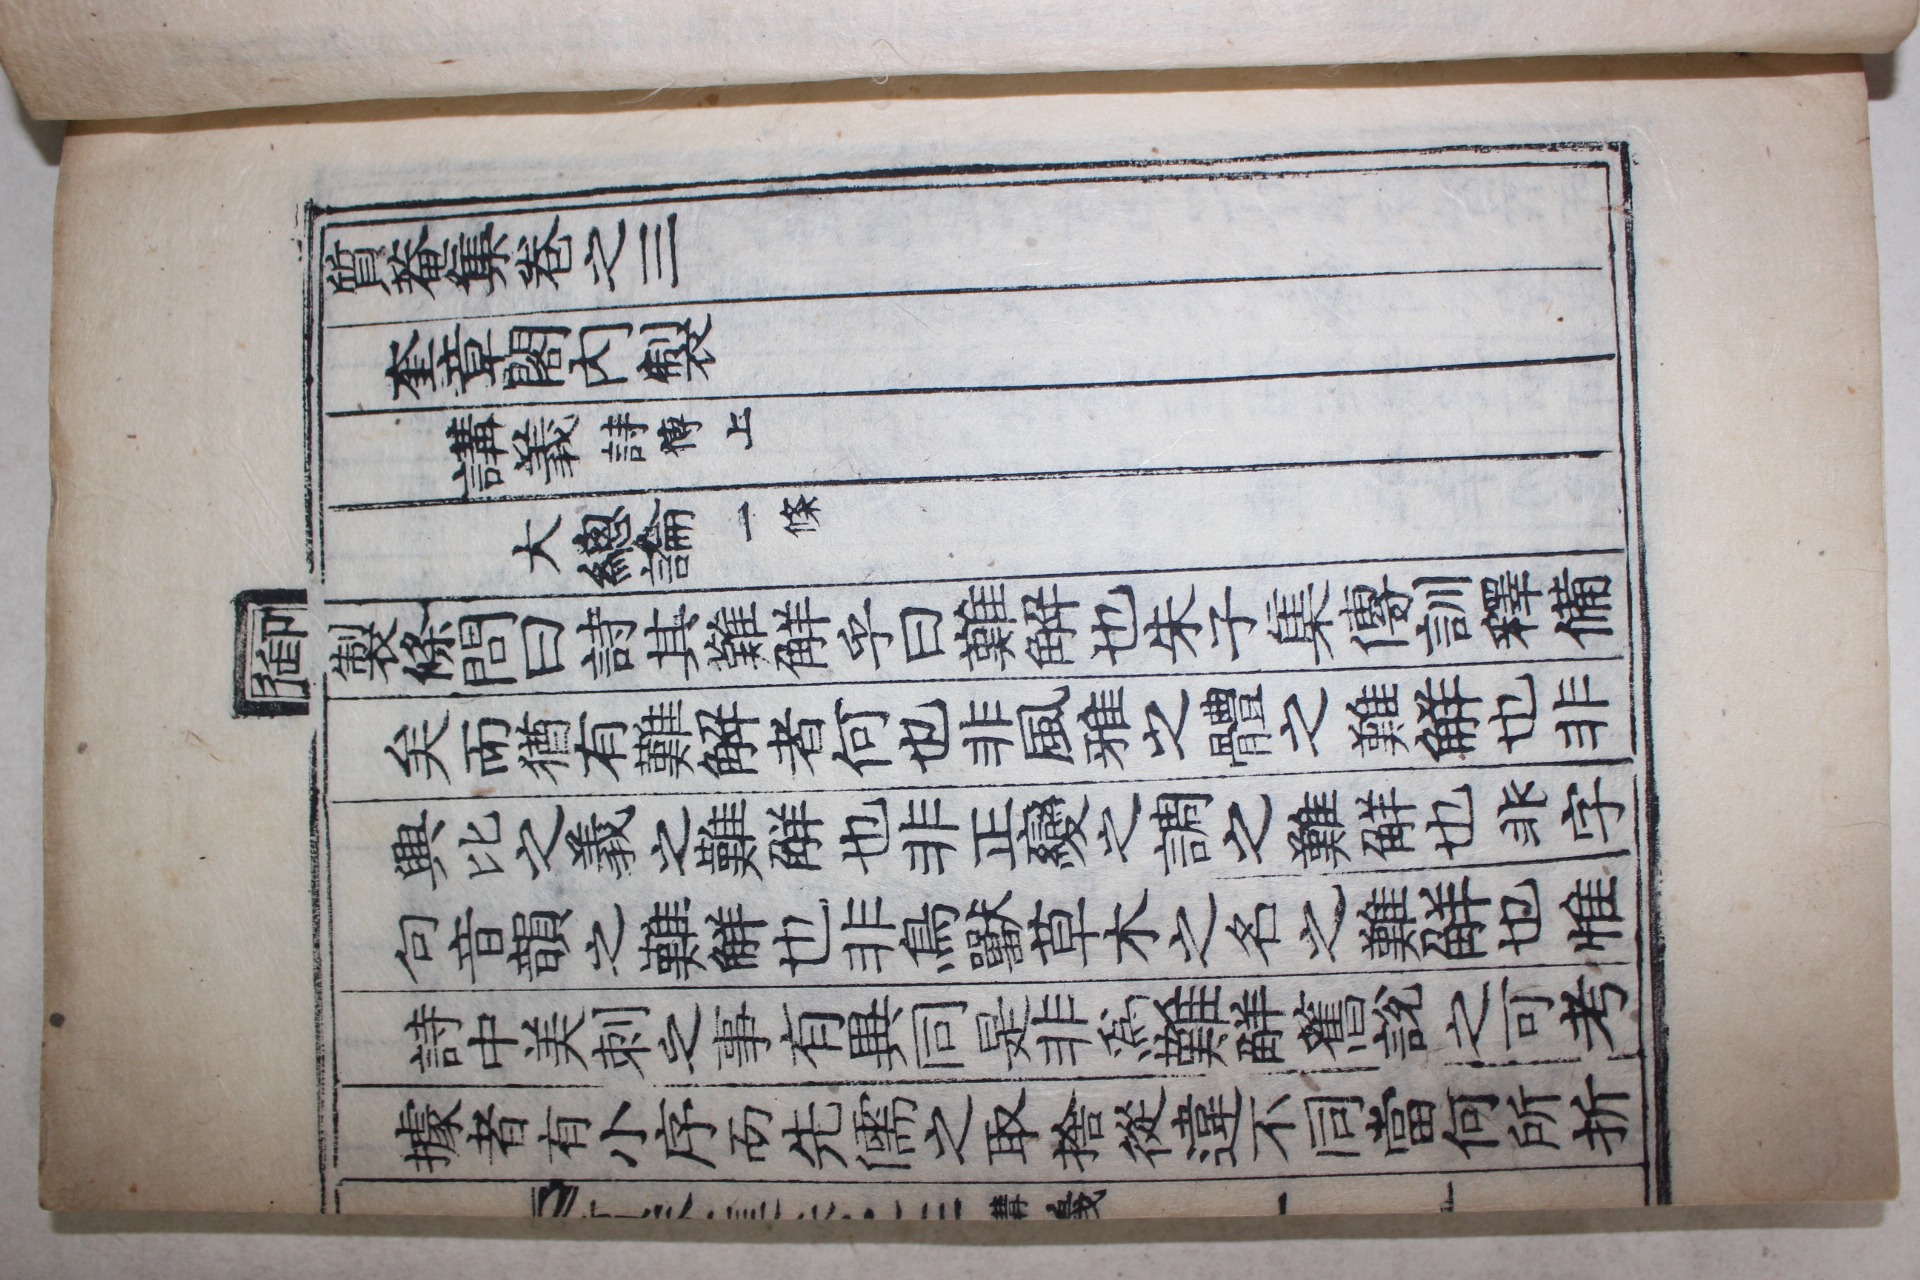 質菴集卷之三
奎章閣內製
講義 詩傳 上
大緫論 一條
御製條問曰詩其難解乎曰難解也朱子集傳訓釋備
矣而猶有難解者何也非風雅之體之難解也非
興比之義之難解也非正變之調之難解也非字
句音韻之難解也非鳥獸草木之名之難解也惟
詩中美刺之事有異同是非爲難解舊說之可考
據者有小序而先儒之取捨從違不同當何所折